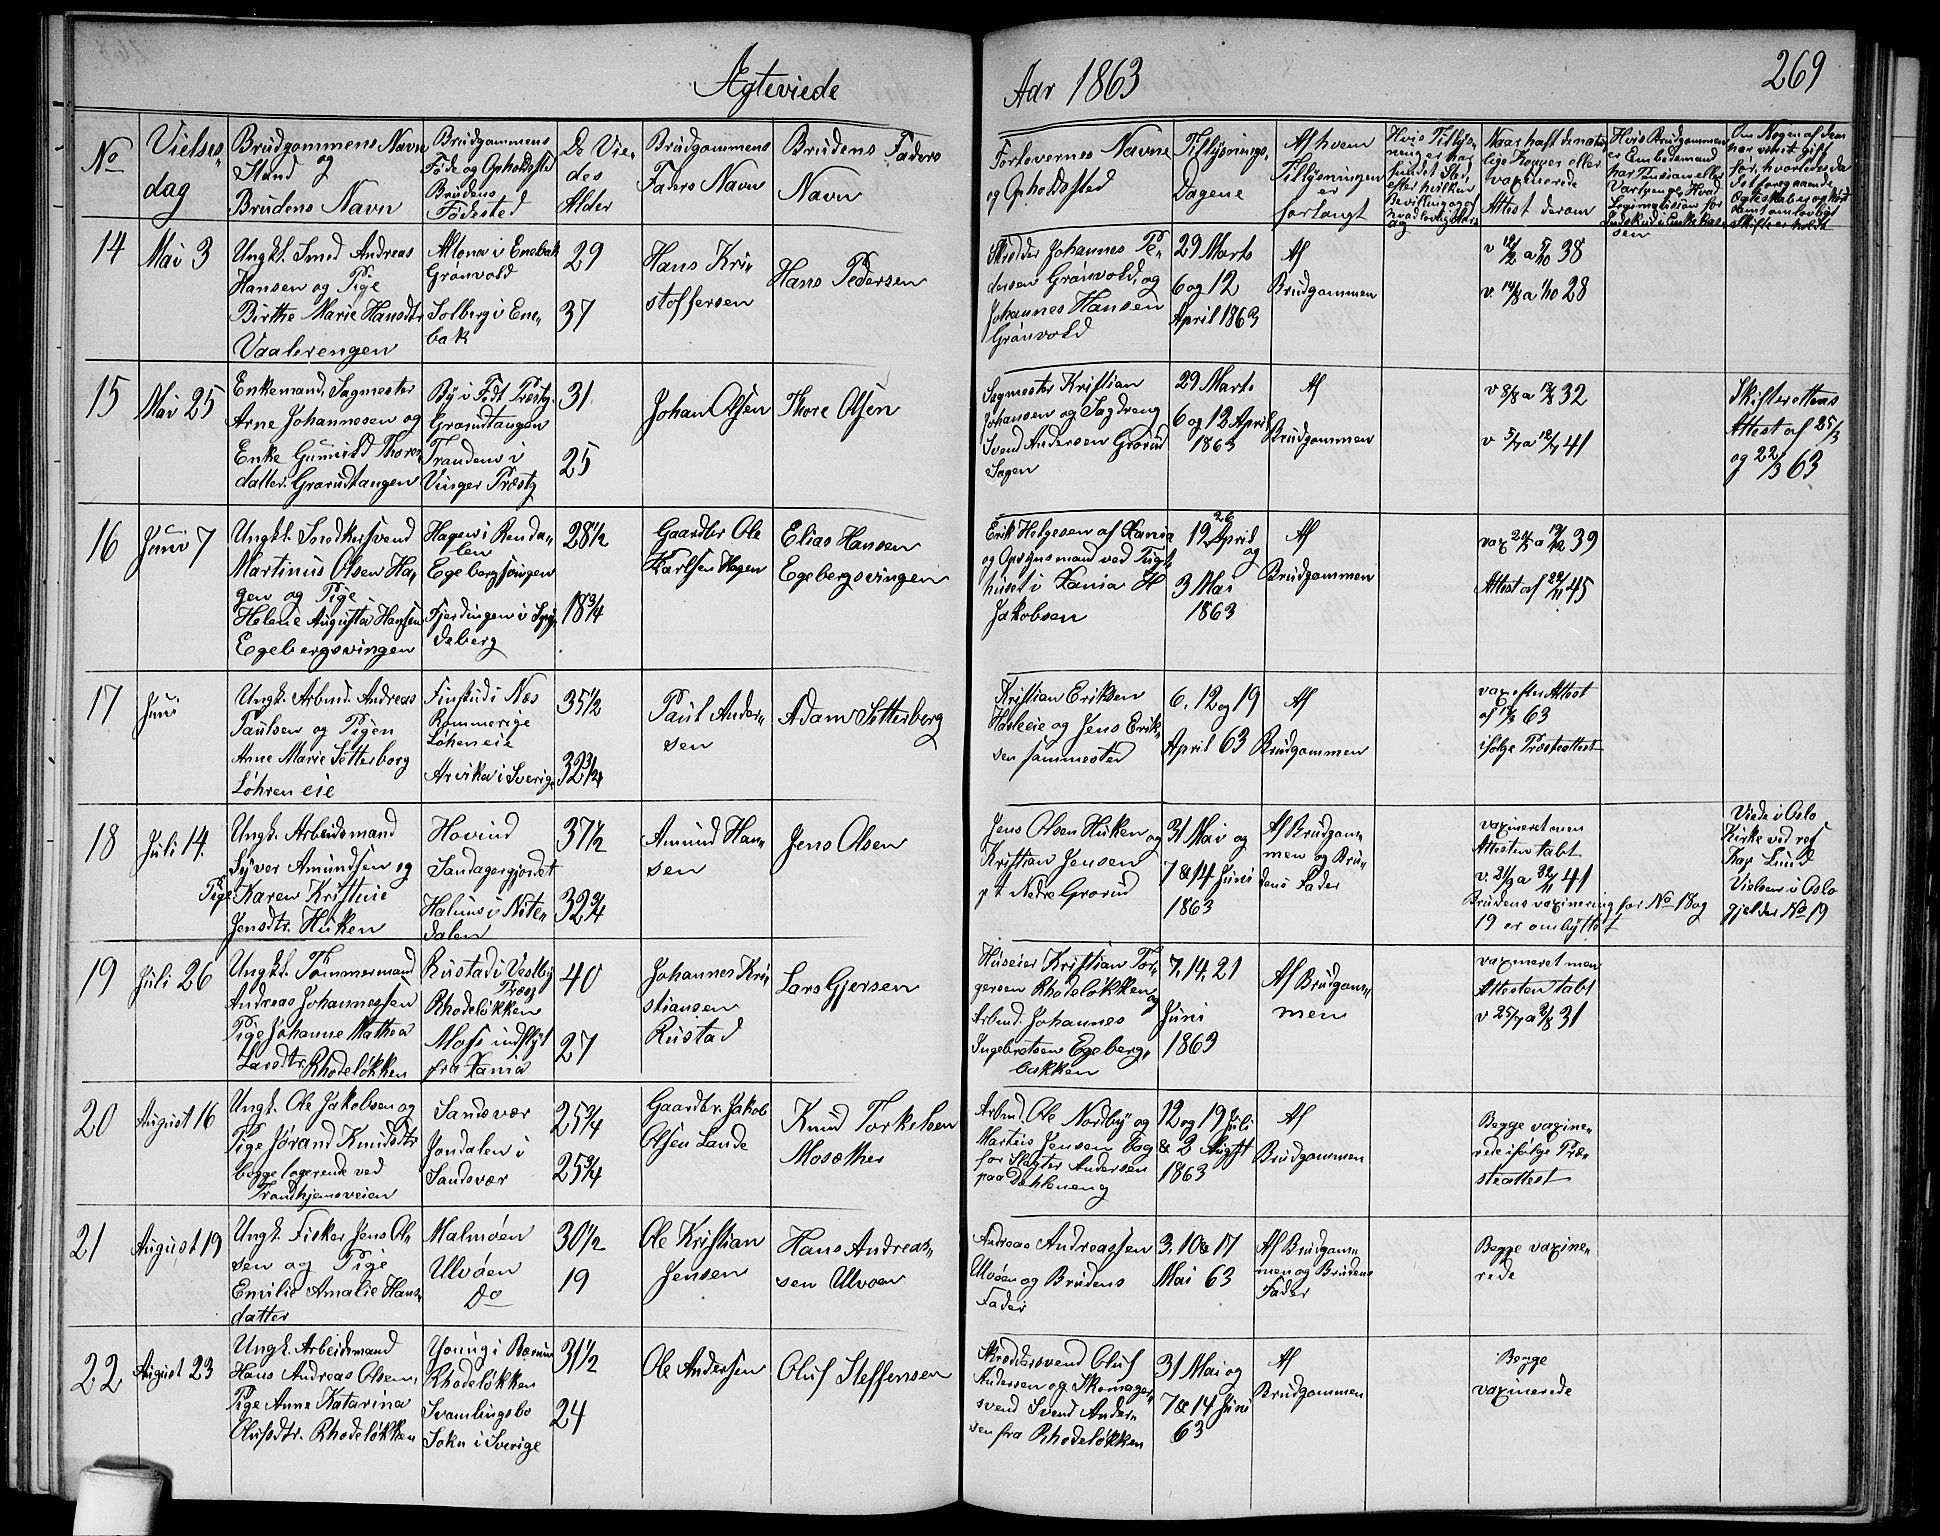 Ægteviede
Aar 1863
269
No
Vielses-
dag
Brudgommens Navn
og
Stand
Brudens Navn
Brudgommens
Føde og Opholdssted
Brudens
Fødested
De Vie-
des
Alder
Brudgommens
Faders Navn
Brudens Faders
Navn
Forlovernes Navne
og Opholdssted
Tillysnings-
Dagene
Af hvem
Tillysningen
er
forlangt
14
Mai 3
Ungk. Smed Andreas
Hansen og Pige
Birthe Marie Hansdtr
Vaalerengen
Altona i Enebak
Grønvold
Solberg i Ene-
bak
29
37
Hans Kri-
stoffersen
Hans Pedersen
Skredder Johannes Pe-
dersen Grønvold, og
Johannes Hansen
Grønvold
29 Marts
6 og 12
April 1863
Af
Brudgommen
15
Mai 25
Enkemand, Sagmester
Arne Johannesen og
Enke Gunnild Thores
datter. Grorudtangen
By i Fedt Præstg.
Grorudtangen
Tranden i
Vinger Præstg
31
25
Johan Olsen
Thore Olsen
Sagmester Kristian
Johansen og Sagdreng
Svend Andersen Grorud
Sagen
29 Marts
6 og 12 April
1863
Af
Brudgommen
Skifterettens
Attest af 25/3
og 22/3 63
16
Juni 7
Ungk. Snedkersvend
Martinus Olsen Ha-
gen og Pige
Helene Augusta Hansen
Egebergsvingen
Hagen i Renda-
len
Egebergsvingen
Fjerdingen i Spy-
deberg
28 1/2
18 3/4
Gaardbr Ole
Karlsen Hagen
Elias Hansen
Egebergsvingen
Erik Helgesen af Xania
og Opsynsmand ved Tugt-
huset i Xania H
Jakobsen
26
19 April
og
3 Mai
1863
Af
Brudgommen
Attest af 22/11 45
17
Juni
Ungk. Arbmd. Andreas
Paulsen og Pigen
Anne Marie Setterberg
Løhren eie
Finstad i Næs
Rommerige
Løhren eie
Arvika i Sverige
35 1/2
32 3/4
Paul Ander-
sen
Adam Setterberg
Kristian Eriksen
Hasleeie og Jens Erik-
sen sammested
6, 12 og 19
April 63
Af
Brudgommen
vax efter Attest
ifølge Præsteattest
18
Juli 14.
Ungk. Arbeidsmand
Syver Amundsen og
Pige Karen Kristine
Jensdtr. Huken
Hovind
Sandagergjordet
Halum i Nite-
dalen
37 1/2
32 3/4
Amund Han-
sen
Jens Olsen
Jens Olsen Huken og
Kristian Jensen
p.t Nedre Grorud
31 Mai og
7 & 14 Juni
1863
Af Brudgom-
men og Bru-
dens Fader
vaxineret men
Attesten tabt
Brudens vaxinering for No 18 og
19 er ombyttet
Viede i Oslo
Kirke ved res
Kap Lund
Vielsen i Oslo
gjelder No 19
19
Juli 26
Ungk. Tømmermand
Andreas Johannessen
Pige Johanne Mathea
Larsdtr. Rhodeløkken
Rustad i Vestby
Præstg
Rhodeløkken
Moss indflyt
fra Xania
40
27
Johannes Kri-
stiansen
Rustad
Lars Gjersen
Huseier Kristian Tor-
gersen Rhodeløkken og
Arbmd. Johannes
Ingebretsen Egeberg-
bakken
7, 14, 21
Juni
1863
Af Brudgom-
men
vaxineret men
Attesten tabt
20
August 16
Ungk. Ole Jakobsen og
Pige Jørand Knudsdtr
begge logerende ved
Trondhjemsveien
Sandsvær
Jondalen i
Sandsvær
25 3/4
25 3/4
Gaardbr. Jakob
Olsen Lande
Knud Torkelsen
Mosæther
Arbmd. Ole Nordby og
12 og 19 Juli
& 2 August
1863
Af
Brudgommen
Begge vaxine-
rede ifølge Præ-
steattest
21
August 19
Ungk. Fisker Jens Ol-
sen og Pige
Emilie Amalie Hans-
datter
Malmøen
Ulvøen
Do
30 1/2
19
Ole Kristian
Jensen
Hans Andreas-
sen Ulvøen
Andreas Andreassen
Ulvøen og Brudens
Fader
3, 10 & 17
Mai 63
Af Brudgom-
men og Brudens
Fader
Begge vaxine-
rede
22
August 23
Ungk. Arbeidsmand
Hans Andreas Olsen,
Pige Anne Katarina
Olufsdtr. Rhodeløkken
Rhodeløkken
Svamlingsbo
Sokn i Sverige
31 1/2
24
Ole Andersen
Oluf Steffensen
Skreddersvend Oluf
Andersen og Skomager-
svend Svend Ander-
sen fra Rhodeløkken
31 Mai og
7 & 14 Juni
63
Af
Brudgommen
Begge
vaxinerede